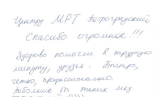 Центру МРТ Петроградский
Спасибо огромное!!!
Здорово помогли в трудную
минуту, друзья. Быстро,
четко, профессионально.
Побольше бы таких мед